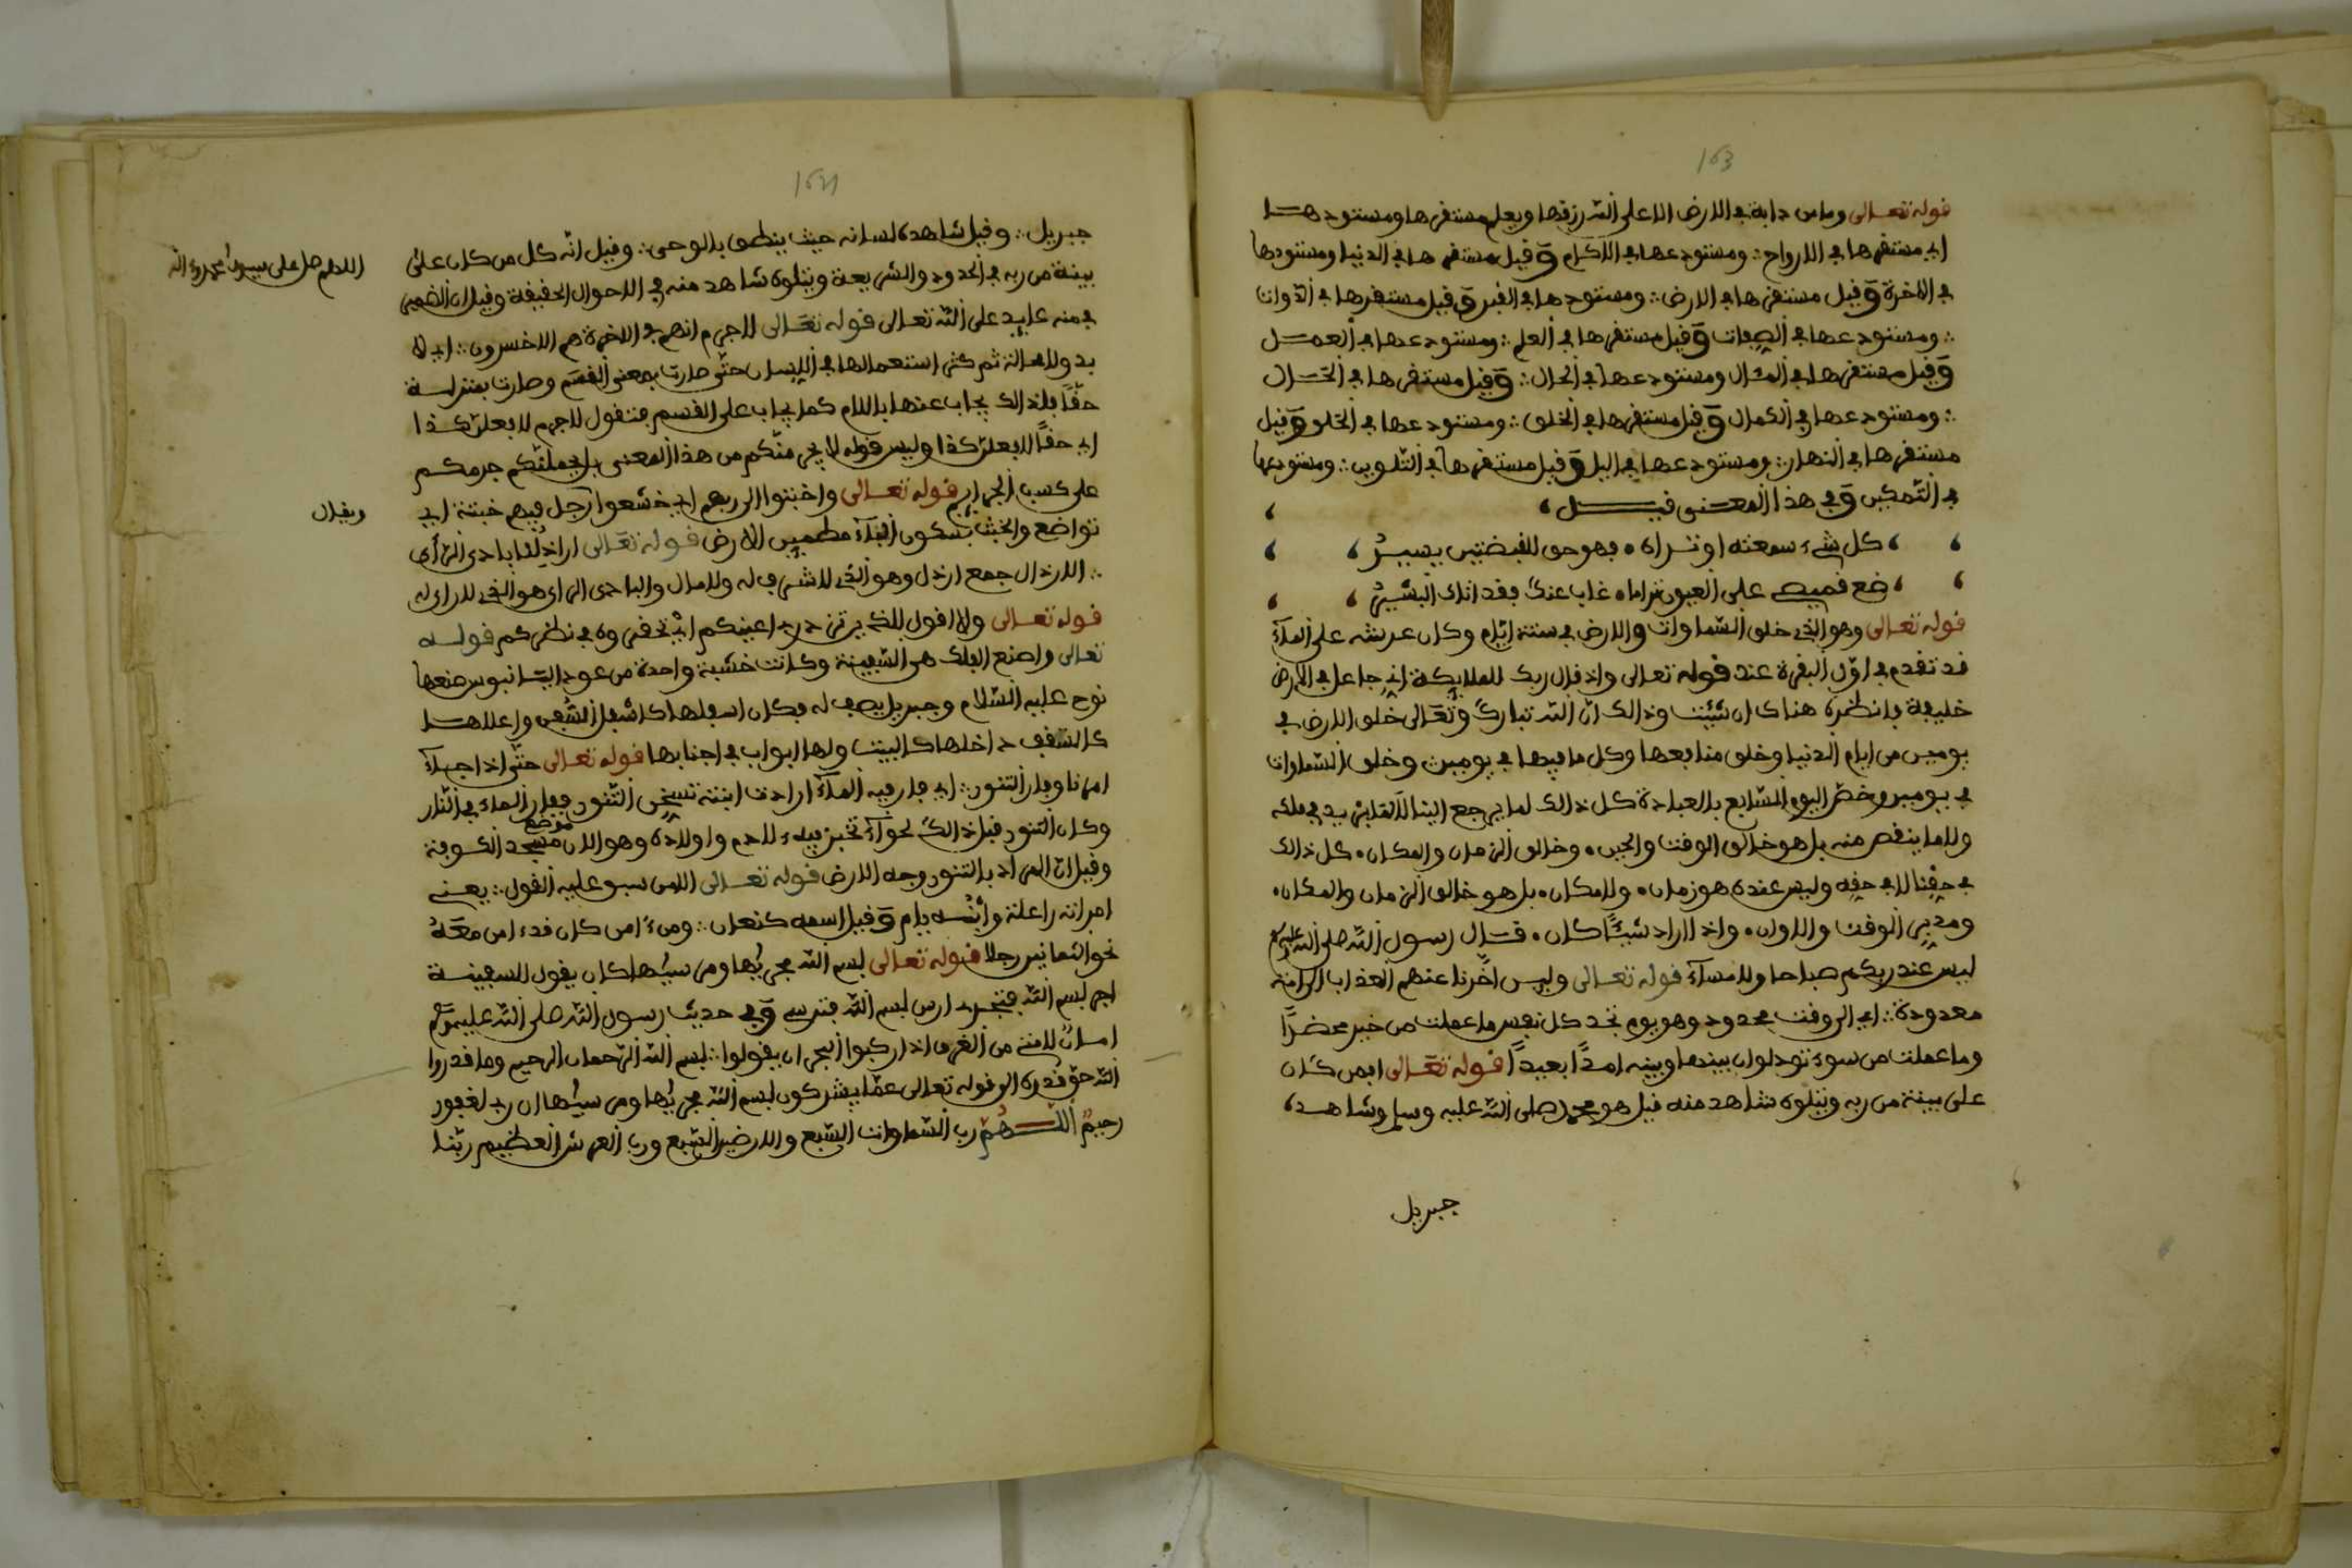 163
قوله تعالى وما من دابة في الارض الا على الله رزقها ويعلم مستقرها ومستودعها
اي مستقرها في الارواح ∴ ومستودعها في وقيل مستقرها في الدنيا ومستودعها
في الاخرة وقيل مستقرها في الارض ∴ ومستودعها في القبر وقيل مستقرها في الذوات
∴ ومستودعها في الصفات وقيل مستقرها في العلم ∴ ومستودعها في العمل
وقيل مستقرها في ومستودعها في الحال ∴ وقيل مستقرها في
∴ ومستودعها في الكمال وقيل مستقرها في الخلق ∴ ومستودعها في وقيل
مستقرها في النهار ∴ ومستودعها في اليل وقيل مستقرها في التلوين ∴ ومستودعها
في التمكين وفي هذا المعنى قيل
كل شيء سمعته او تراه ٠ فهو من القبضتين يسير
ضع قميصي على العيون تراما ٠ غاب عنك فقد اتاك البشير
قوله تعالى وهو الذي خلق السماوات والارض في ستة ايام وكان عرشه على الماء
قد تقدم في اول البقرة عند قوله تعالى واذ قال ربك للملايكة اني جاعل في الارض
خليفة فانظره هناك ان شيت وذالك ان الله تبارك وتعالى خلق الارض في
يومين من ايام الدنيا وخلق منافعها وكل ما فيها في يومين وخلق السماوات
في يومين وخص اليوم السابع بالعبادة كل ذالك لما يرجع الينا لا لقا يزيد في ملكه
ولا ما ينقص منه بل هو خالق الوقت والحين ٠ وخالق الزمان والمكان ٠ كل ذالك
في حقنا لا في حقه وليس عنده هو زمان ٠ ولا مكان ٠ بل هو خالق الزمان والمكان ٠
ومدبر الوقت والاوان ٠ واذا اراد شيئا كان ٠ قال رسول الله صلى الله عليه وسلم
ليس عند ربكم صباحا ولا مساء قوله تعالى وليس اخرنا عنهم العذاب الى امة
معدودة ∴ اي الى وقت محدود وهو يوم تجد كل نفس ما عملت من خير محضرا
وما عملت من سوء تود لو ان بينها وبينه امدا بعيدا قوله تعالى افمن كان
على بينة من ربه ويتلوه شاهد منه قيل هو محمد صلى الله عليه وسلم وشاهده
جبريل
164
جبريل ∴ وقيل شاهده لسانه حيث ينطق بالوحي ∴ وقيل انه كل من كان على
بينة من ربه في الحدود والشريعة ويتلوه شاهد منه في الاحوال الحقيقة وقيل ان الضمير
في منه عايد على الله تعالى قوله تعالى لا جرم انهم في الاخرة هم الاخسرون ∴ اي لا
بد ولا محالة ثم كثر استعمالها في اللسان حتى صارت بمعنى القسم وصارت بمنزلة
حقا فلذالك يجاب عنها باللام كما يجاب على القسم فتقول لا جرم لافعلن كذا
اي حقا لافعلن كذا وليس قوله لا يجرمنكم من هذا المعنى بل يحملنكم جرمكم
على كسب الجرايم قوله تعالى واخبتوا الى ربهم اي خشعوا رجل فيهم خبتة اي
تواضع والخبت بسكون الباء مطمين الارض قوله تعالى اراذلنا بادي الرأي
∴ الارذال جمع ارذل وهو الذي لا شرف له ولا مال والبادي الراى هو الذي لا راي له
قوله تعالى ولا اقول للذين تزدري اعينكم اي تحقروه في نظركم قوله
تعالى واصنع الفلك هي السفينة وكانت خشبة واحدة من عود الساج صنعها
نوح عليه السلام وجبريل يصف له فكان اسفلها كاسفل السفن واعلاها
كالسقف داخلها كالبيت ولها ابواب في اجنابها قوله تعالى حتى اذا جاء
امرنا وفار التنور ∴ اي فار فيه الماء ارادت ابنته تسخن التنور ففار الماء في النار
وكان التنور قبل ذالك لحواء تخبز فيه لادم واولاده وهو الان موضع مسجد الكوفة
وقيل ان المراد بالتنور وجه الارض قوله تعالى الا من سبق عليه القول ∴ يعني
امراته راعلة وابنه يام وقيل اسمه كنعان ∴ ومن ءامن كان قد ءامن معه
نحو الثمانين رجلا قوله تعالى بسم الله مجريها ومرسيها كان يقول للسفينة
اجر بسم الله فتجري ارس بسم الله فترسي وفي حديث رسول الله صلى الله عليه وسلم
امان لامتي من الغرق اذا ركبوا البحر ان يقولوا ∴ بسم الله الرحمان الرحيم وما قدروا
الله حق قدره الى قوله تعالى عما يشركون بسم الله مجريها ومرسيها ان ربي لغفور
رحيم اللهم رب السماوات السبع والارضين السبع ورب العرش العظيم ربنا
اللهم صل على سيدنا محمد
ويقال